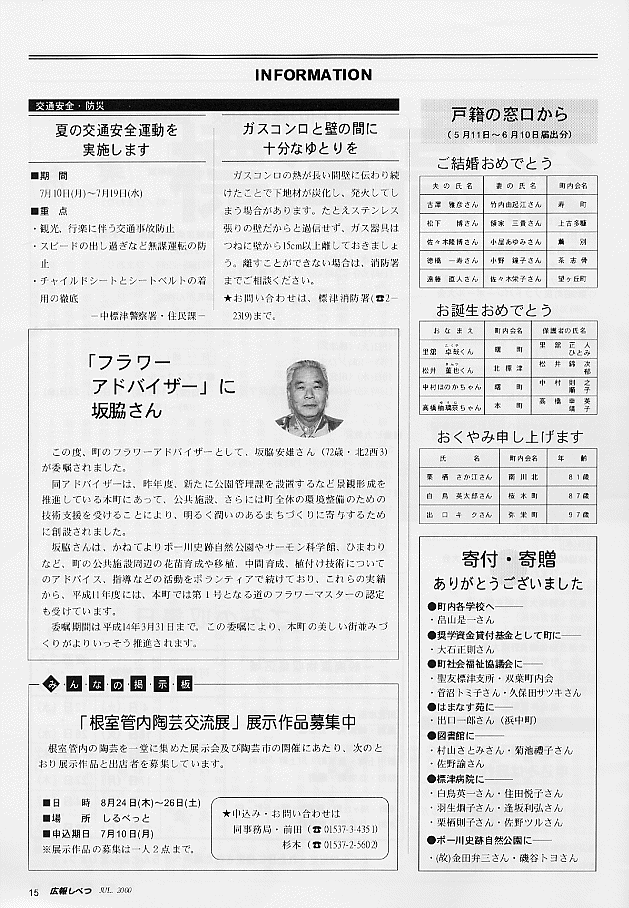 INFORMATION
交通安全・防災
夏の交通安全運動を
実施します
■期　間
7月10日(月)～7月19日(水)
■重　点
・観光、行楽に伴う交通事故防止
・スピードの出し過ぎなど無謀運転の防
止
・チャイルドシートとシートベルトの着
用の徹底
－中標津警察署・住民課－
ガスコンロと壁の間に
十分なゆとりを
ガスコンロの熱が長い間壁に伝わり続
けたことで下地材が炭化し、発火してし
まう場合があります。たとえステンレス
張りの壁だからと過信せず、ガス器具は
つねに壁から15cm以上離しておきましょ
う。離すことができない場合は、消防署
までご相談ください。
★お問い合わせは、標津消防署(☎2－
2319)まで。
「フラワー
アドバイザー」に
坂脇さん
この度、町のフラワーアドバイザーとして、坂脇安雄さん(72歳・北2西3)
が委嘱されました。
同アドバイザーは、昨年度、新たに公園管理課を設置するなど景観形成を
推進している本町にあって、公共施設、さらには町全体の環境整備のための
技術支援を受けることにより、明るく潤いのあるまちづくりに寄与するため
に創設されました。
坂脇さんは、かねてよりポー川史跡自然公園やサーモン科学館、ひまわり
など、町の公共施設周辺の花苗育成や移植、中間育成、植付け技術について
のアドバイス、指導などの活動をボランティアで続けており、これらの実績
から、平成11年度には、本町では第1号となる道のフラワーマスターの認定
も受けています。
委嘱期間は平成14年3月31日まで。この委嘱により、本町の美しい街並みづ
くりがよりいっそう推進されます。
み・ん・な・の・掲・示・板
「根室管内陶芸交流展」展示作品募集中
根室管内の陶芸を一堂に集めた展示会及び陶芸市の開催にあたり、次のと
おり展示作品と出店者を募集しています。
■日　　時　8月24日(木)～26日(土)
■場　　所　しるぺっと
■申込期日　7月10日(月)
※展示作品の募集は一人2点まで。
★申込み・お問い合わせは
同事務局・前田（☎01537-3-4351)
杉本（☎01537-2-5602)
戸籍の窓口から
（5月11日～6月10日届出分）
ご結婚おめでとう
夫の氏名　妻の氏名　町内会名
古澤　雅彦さん　竹内由起江さん　寿　町
松下　博さん　三貴さん　上古多糠
佐々木隆博さん　小屋あゆみさん　薫　別
徳橋　一寿さん　小野　鏡子さん　茶志骨
遠藤　直人さん　佐々木栄子さん　望ヶ丘町
お誕生おめでとう
おなまえ　町内会名　保護者の氏名
里舘　卓哉くん　曙　町　里舘　正人
ひとみ
松井　也くん　北標津　松井　錦次
郁
中村ほのかちゃん　曙　町　中村　則之
順子
高橋ちゃん　本　町　高橋　幸英
子
おくやみ申し上げます
氏　名　町内会名　年　齢
栗栖　さか江さん　南川北　81歳
白鳥　英太郎さん　桜木町　87歳
出口　キクさん　弥栄町　97歳
寄付・寄贈
ありがとうございました
●町内各学校へ──
・畠山是一さん
●奨学資金貸付基金として町に──
・大石正則さん
●町社会福祉協議会に──
・聖友標津支所・双葉町内会
・菅沼トミ子さん・久保田サツキさん
●はまなす苑に──
・出口一郎さん（浜中町）
●図書館に──
・村山さとみさん・菊池禮子さん
・佐野諭さん
●標津病院に──
・白鳥英一さん・住田悦子さん
・羽生烱子さん・逢坂利弘さん
・栗栖則子さん・佐野ツルさん
●ポー川史跡自然公園に──
・(故)金田弁三さん・磯谷トヨさん
15　広報しべつ　JUL. 2000